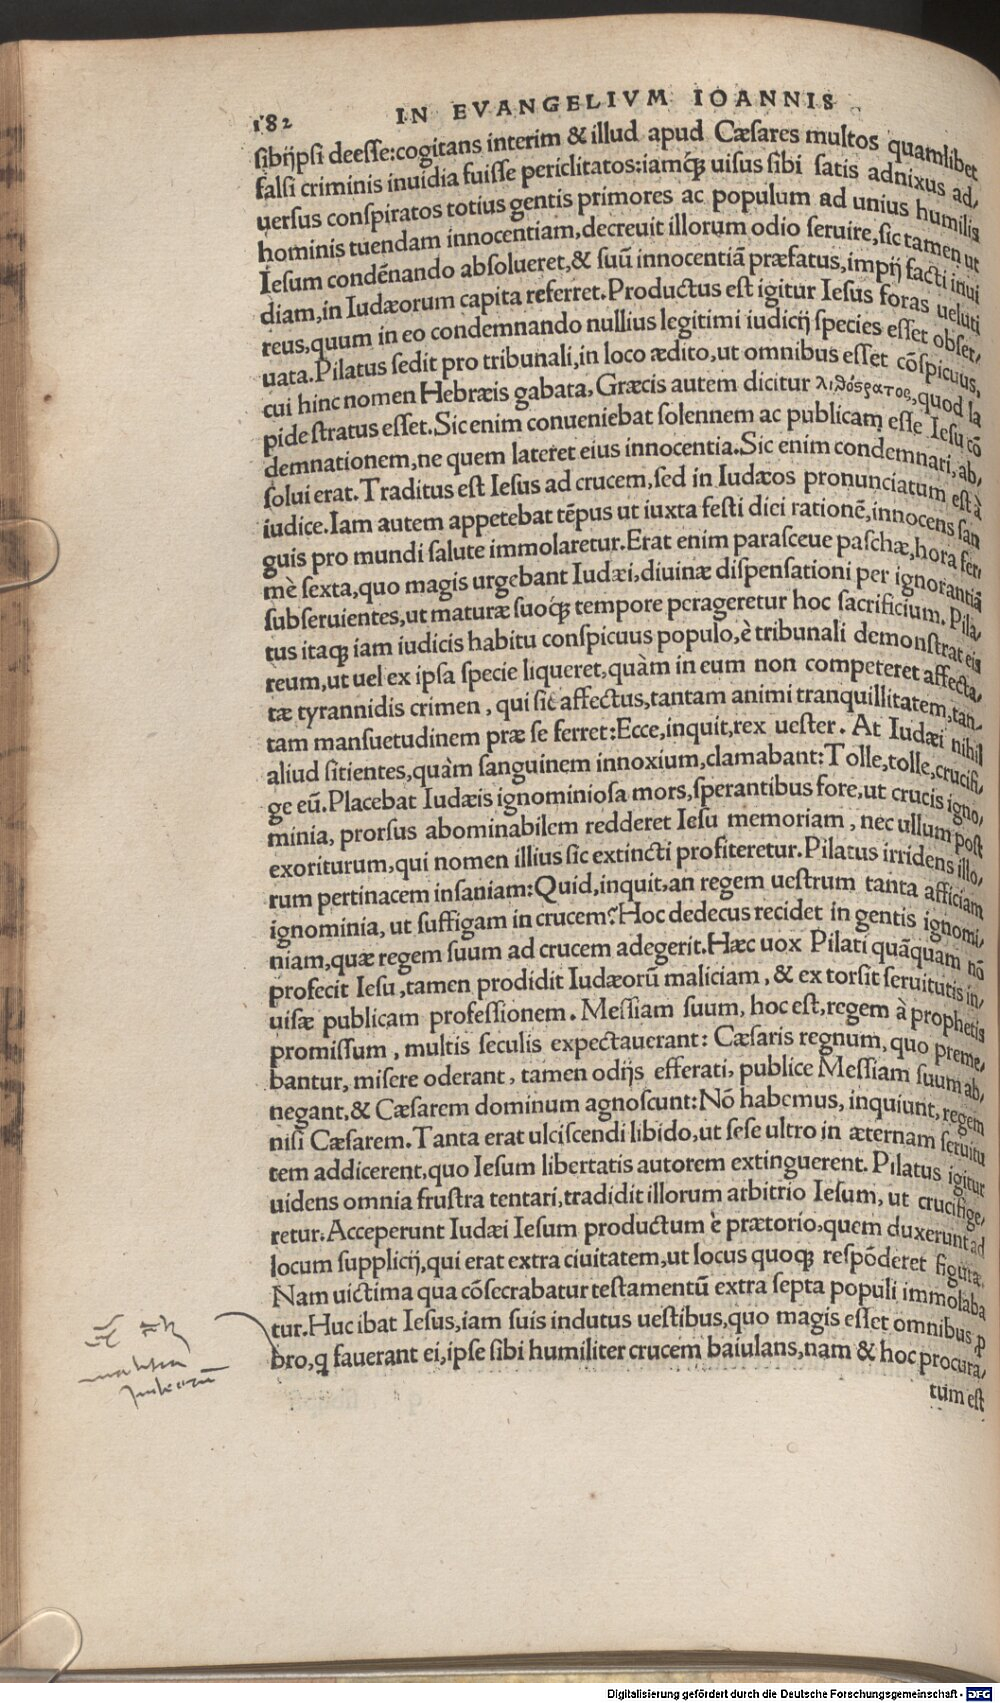 182 IN EVANGELIVM IOANNIS
sibijpsi deesse:cogitans interim & illud apud Cæsares multos quamlibet
falsi criminis inuidia fuisse periclitatos:iamq́; uisus sibi satis adnixus ad,
uersus conspiratos totius gentis primores ac populum ad unius humilis
hominis tuendam innocentiam,decreuit illorum odio seruire,sic tamen ut
Iesum condēnando absolueret,& suū innocentiā præfatus,impij facti inui
diam,in Iudæorum capita referret.Productus est igitur Iesus foras ueluti
reus,quum in eo condemnando nullius legitimi iudicij species esset obser,
uata.Pilatus sedit pro tribunali,in loco ædito,ut omnibus esset cōspicuus,
cui hinc nomen Hebræis gabata, Græcis autem dicitur λιθόςρατος,quod la
pide stratus esset.Sic enim conueniebat solennem ac publicam esse Iesu cō
demnationem,ne quem lateret eius innocentia.Sic enim condemnari, ab,
solui erat.Traditus est Iesus ad crucem,sed in Iudæos pronunciatum est à
iudice.Iam autem appetebat tēpus ut iuxta festi diei rationē,innocens san
guis pro mundi salute immolaretur.Erat enim parasceue paschæ,hora fer,
mè sexta,quo magis urgebant Iudæi,diuinæ dispensationi per ignorantiā
subseruientes,ut maturæ suoq́; tempore perageretur hoc sacrificium. Pila,
tus itaq; iam iudicis habitu conspicuus populo,è tribunali demonstrat eis
reum,ut uel ex ipsa specie liqueret,quàm in eum non competeret affecta,
tæ tyrannidis crimen , qui sic affectus,tantam animi tranquillitatem,tan,
tam mansuetudinem præ se ferret:Ecce,inquit,rex uester . At Iudæi nihil
aliud sitientes,quàm sanguinem innoxium,clamabant:Tolle,tolle,crucifi,
ge eū.Placebat Iudæis ignominiosa mors,sperantibus fore,ut crucis igno,
minia, prorsus abominabilem redderet Iesu memoriam , nec ullum post
exoriturum,qui nomen illius sic extincti profiteretur.Pilatus irridens illo,
rum pertinacem insaniam:Quid,inquit,an regem uestrum tanta afficiam
ignominia, ut suffigam in crucem?Hoc dedecus recidet in gentis ignomi,
niam,quæ regem suum ad crucem adegerit.Hæc uox Pilati quāquam nō
profecit Iesu ,tamen prodidit Iudæorū maliciam , & ex torsit seruitutis in,
uisæ publicam professionem . Messiam suum, hoc est,regem à prophetis
promissum , multis seculis expectauerant: Cæsaris regnum, quo preme,
bantur, misere oderant , tamen odijs efferati, publice Messiam suum ab,
negant,& Cæsarem dominum agnoscunt:Nō habemus, inquiunt, regem
nisi Cæsarem.Tanta erat ulciscendi libido,ut sese ultro in æternam seruitu
tem addicerent,quo Iesum libertatis autorem extinguerent. Pilatus igitur
uidens omnia frustra tentari,tradidit illorum arbitrio Iesum, ut crucifige,
retur.Acceperunt Iudæi Iesum productum è prætorio,quem duxerunt ad
locum supplicij,qui erat extra ciuitatem,ut locus quoq; respōderet figuræ.
Nam uictima qua cōsecrabatur testamentū extra septa populi immolaba
tur.Huc ibat Iesus,iam suis indutus uestibus,quo magis esset omnibus p
bro,q fauerant ei,ipse sibi humiliter crucem baiulans,nam & hoc procura,
tum est
Digitalisierung gefördert durch die Deutsche Forschungsgemeinschaft - DFG